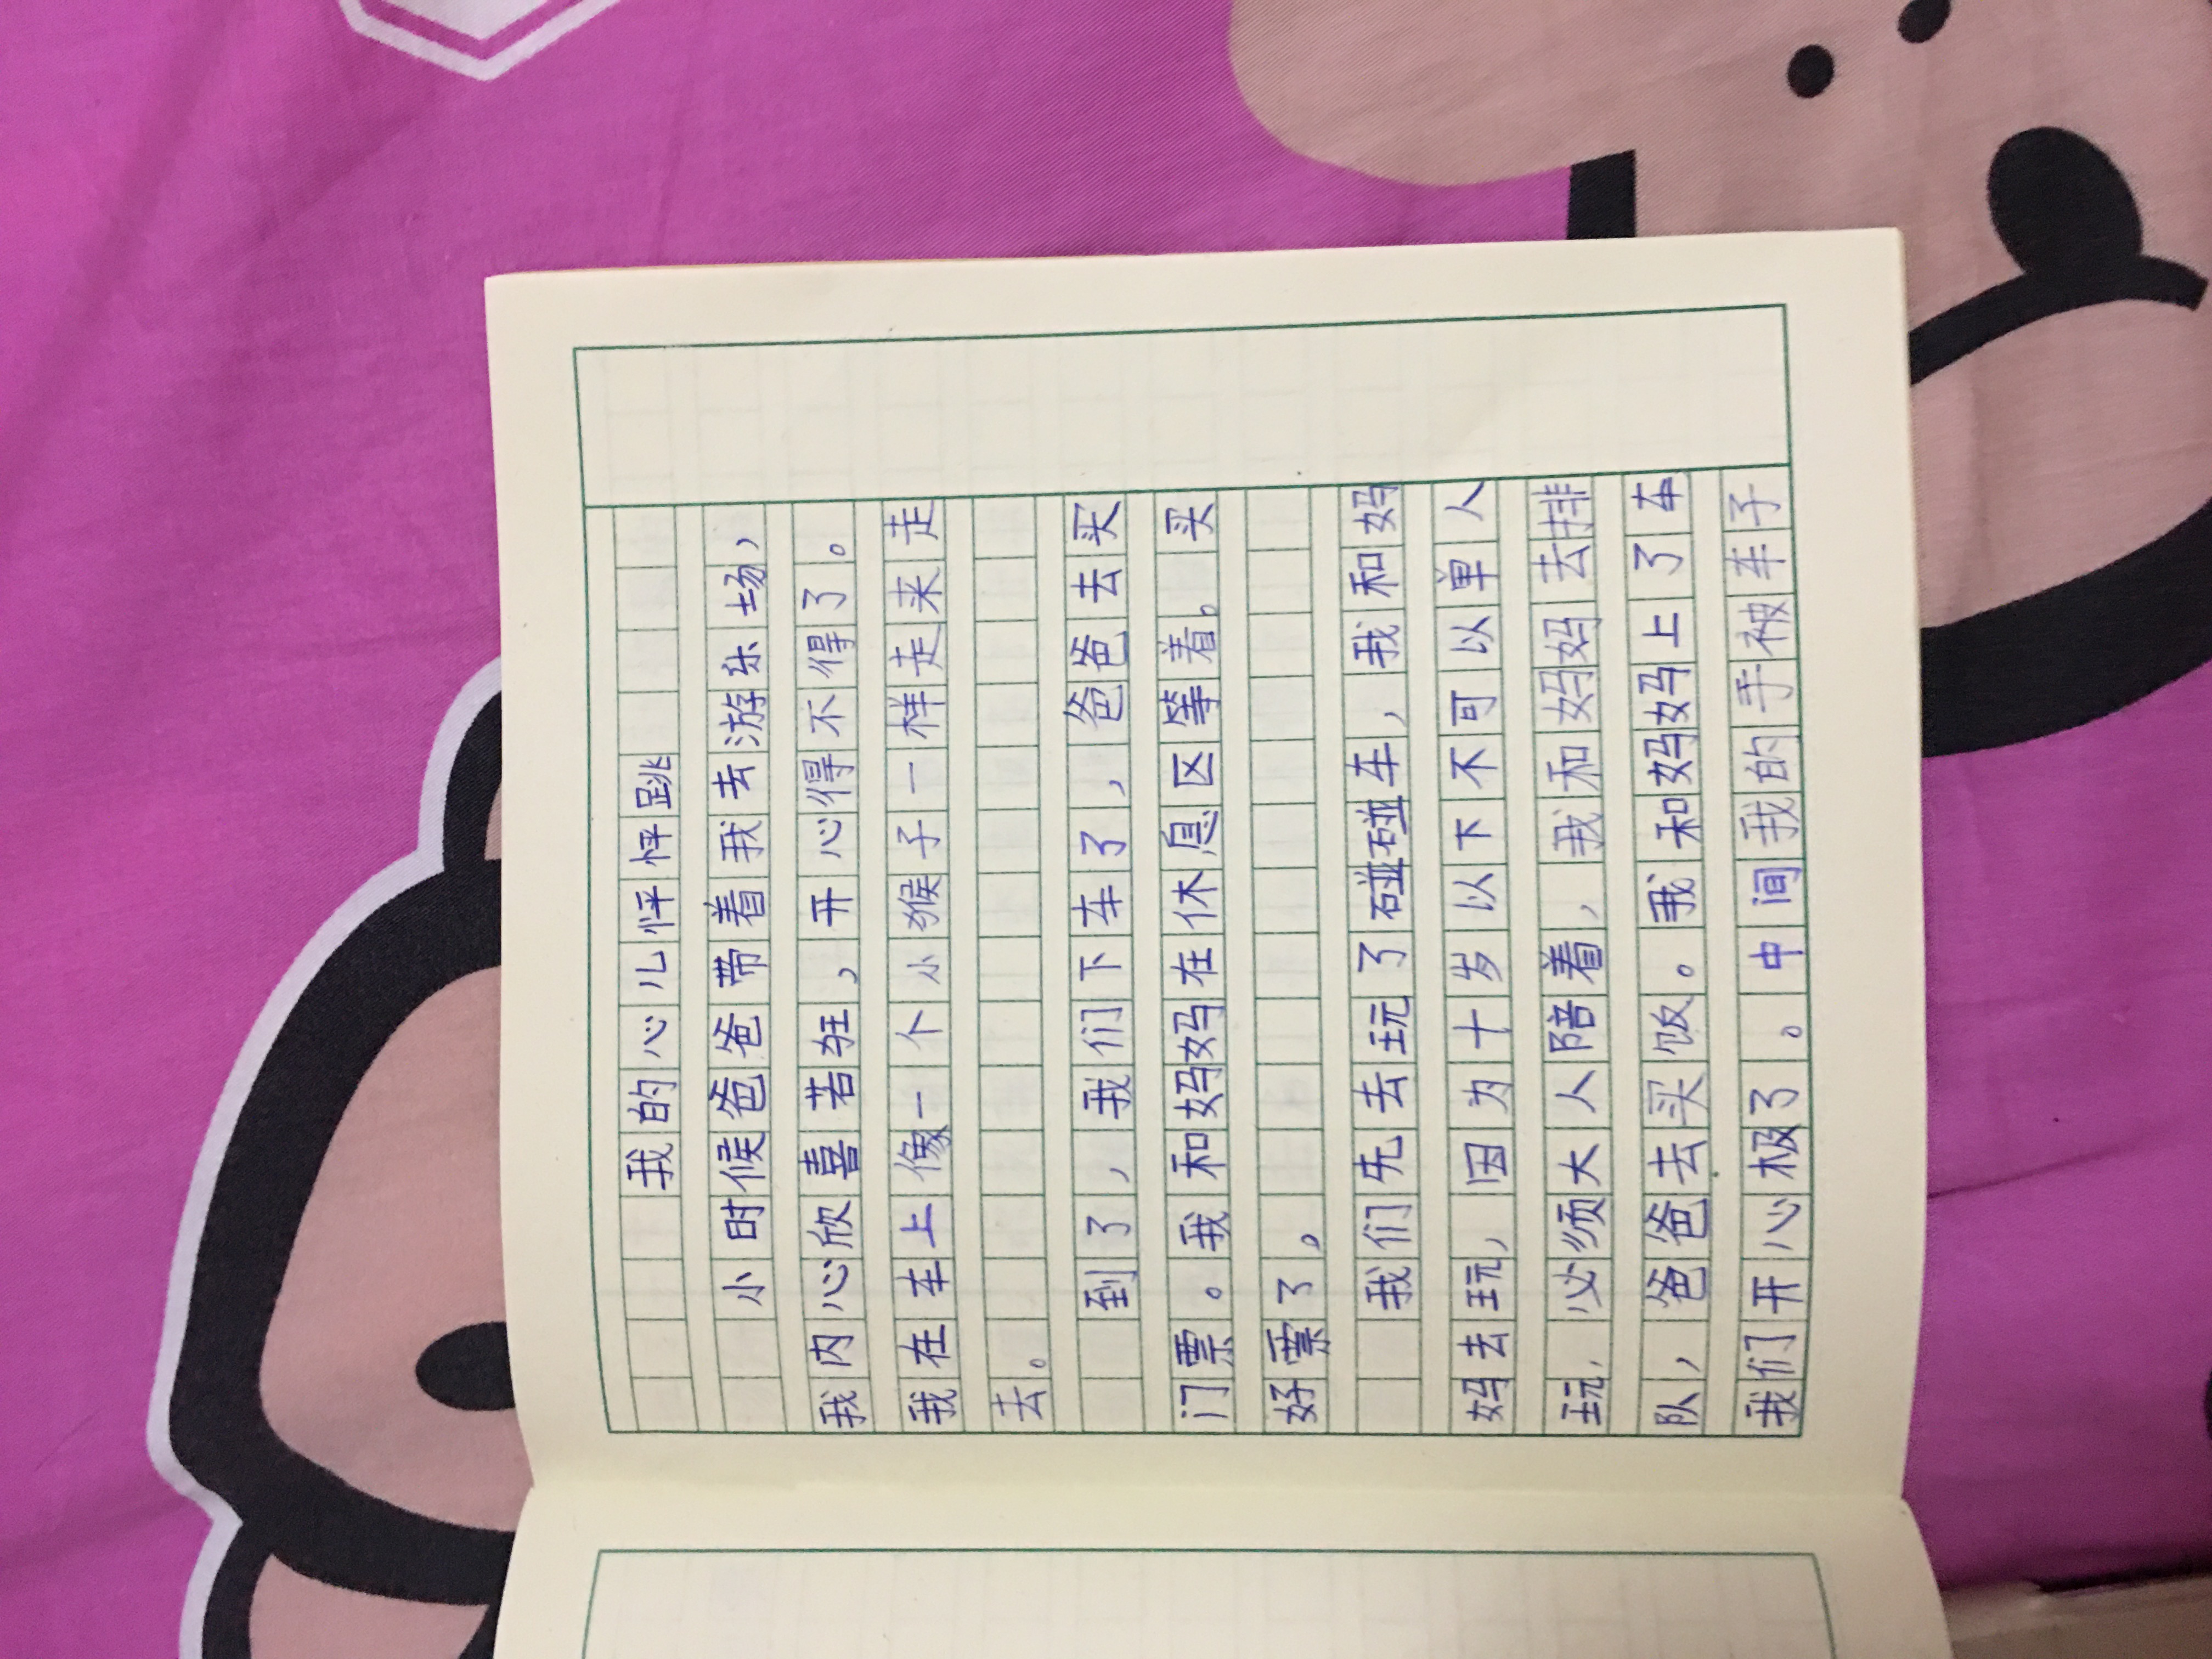 我的心儿怦怦跳
小时候爸爸带着我去游乐场，
我内心欣喜若狂，开心得不得了。
我在车上像一个小猴子一样走来走
去。
到了，我们下车了，爸爸去买
门票。我和妈妈在休息区等着。买
好票了。
我们先去玩了碰碰车，我和妈
妈去玩，因为十岁以下不可以单人
玩，必须大人陪着，我和妈妈去排
队，爸爸去买饭。我和妈妈上了车
我们开心极了。中间我的手被车子